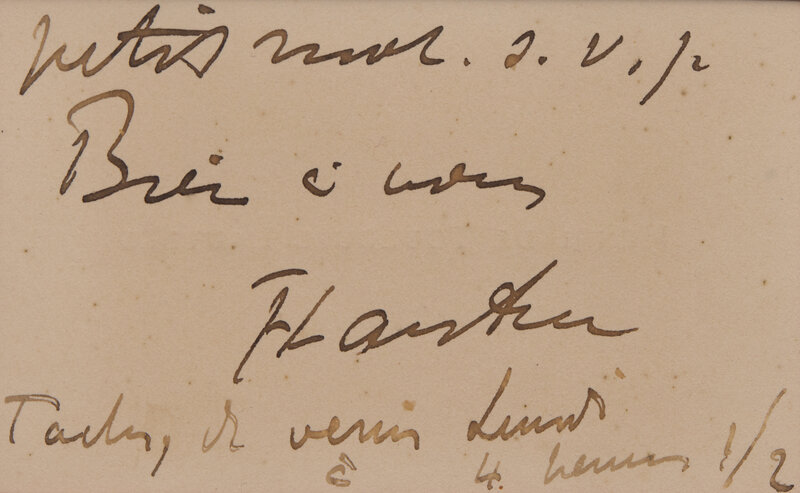 petit mot. s. v. p
Bien à vous
Tachez de venir Lundi
à 4. heures 1/2